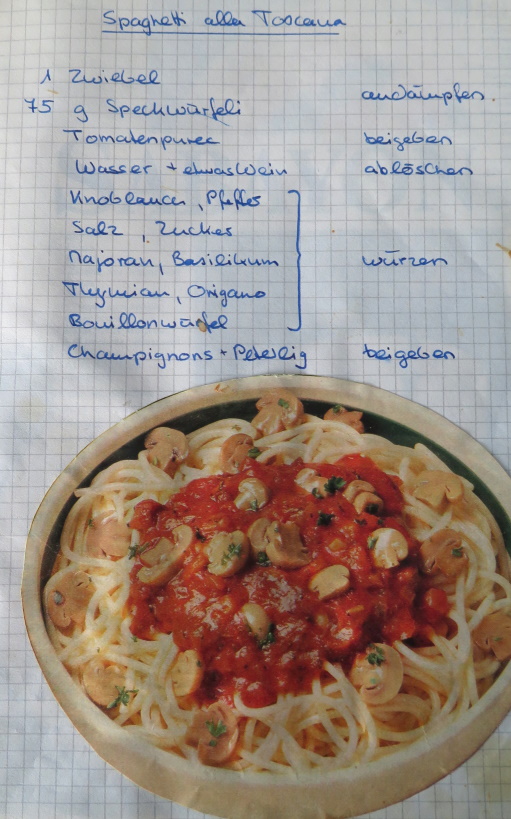 Spaghetti alla Toscana
1 Zwiebel
75 g Speckwürfeli andämpfen.
Tomatenpuree beigeben
Wasser + etwas Wein ablöschen
Knoblauch, Pfeffer
Salz, Zucker
Majoran, Basilikum würzen
Thymian, Origano
Bouillonwürfel
Champignons + Peterlig beigeben